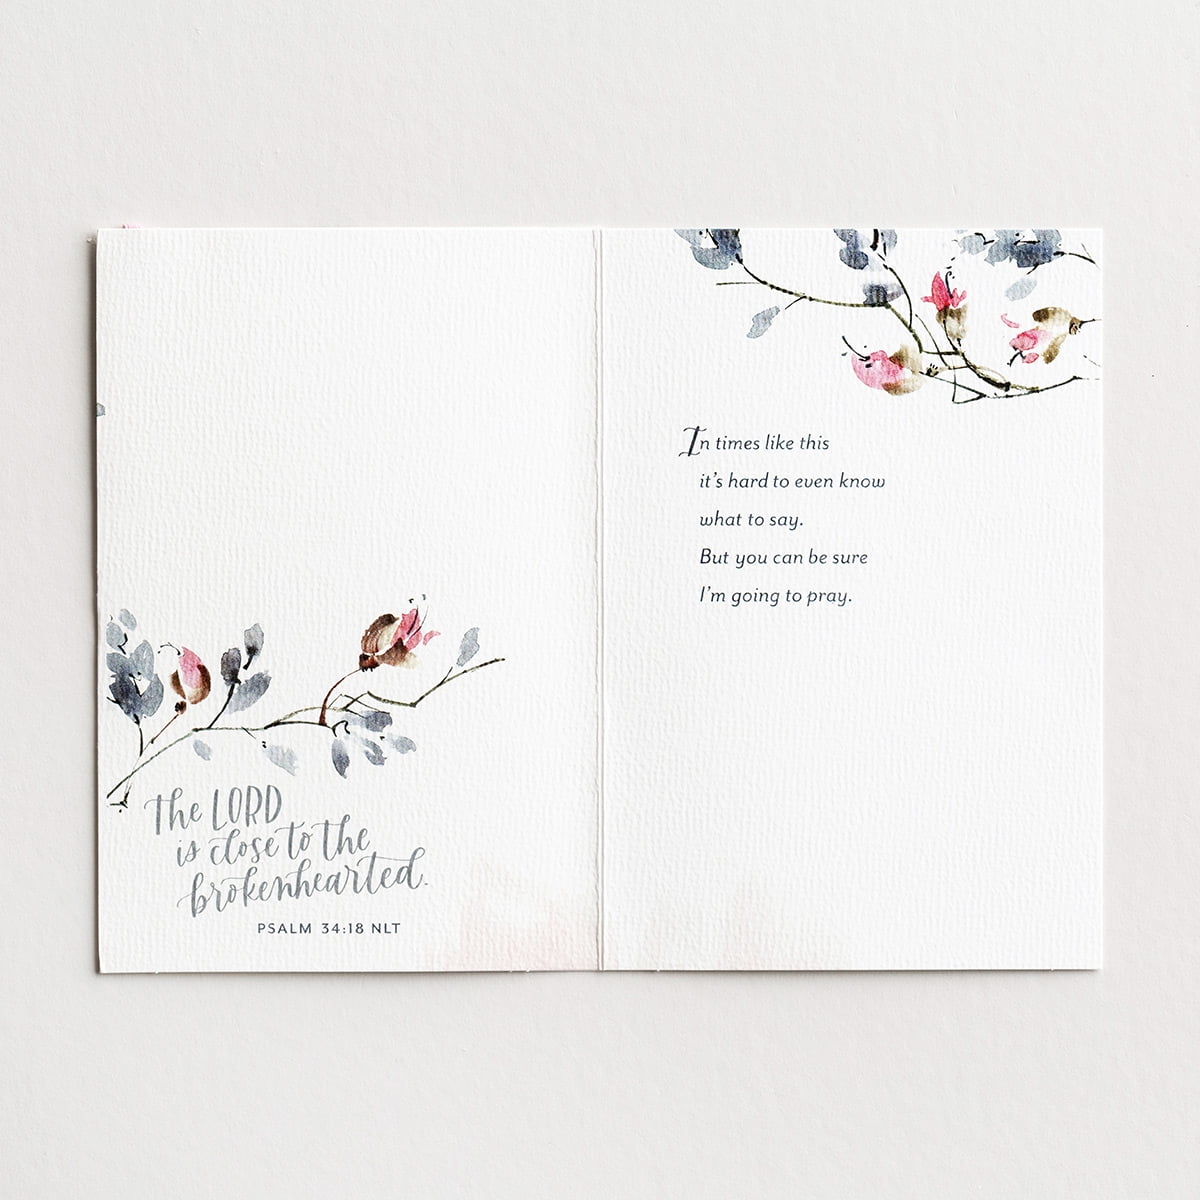 The LORD
is close to the
brokenhearted.
PSALM 34:18 NLT
In times like this
it's hard to even know
what to say.
But you can be sure
I'm going to pray.